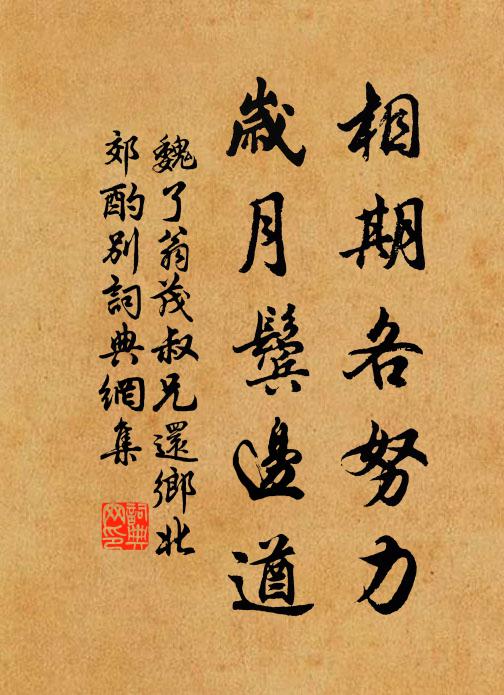 相期各努力
歲月鬢邊遒
魏了翁茂叔兄還鄉北
郊酌別詞典網集
詞典网印